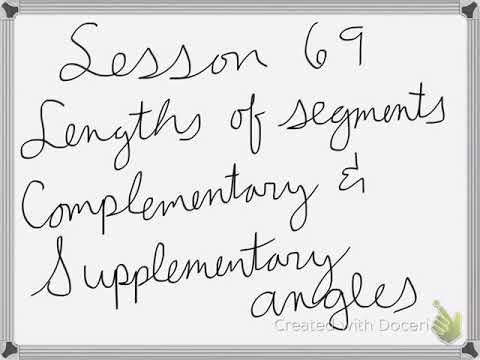 Lesson 69
Lengths of segments
Complementary &
Supplementary
angles
Created with Doceri